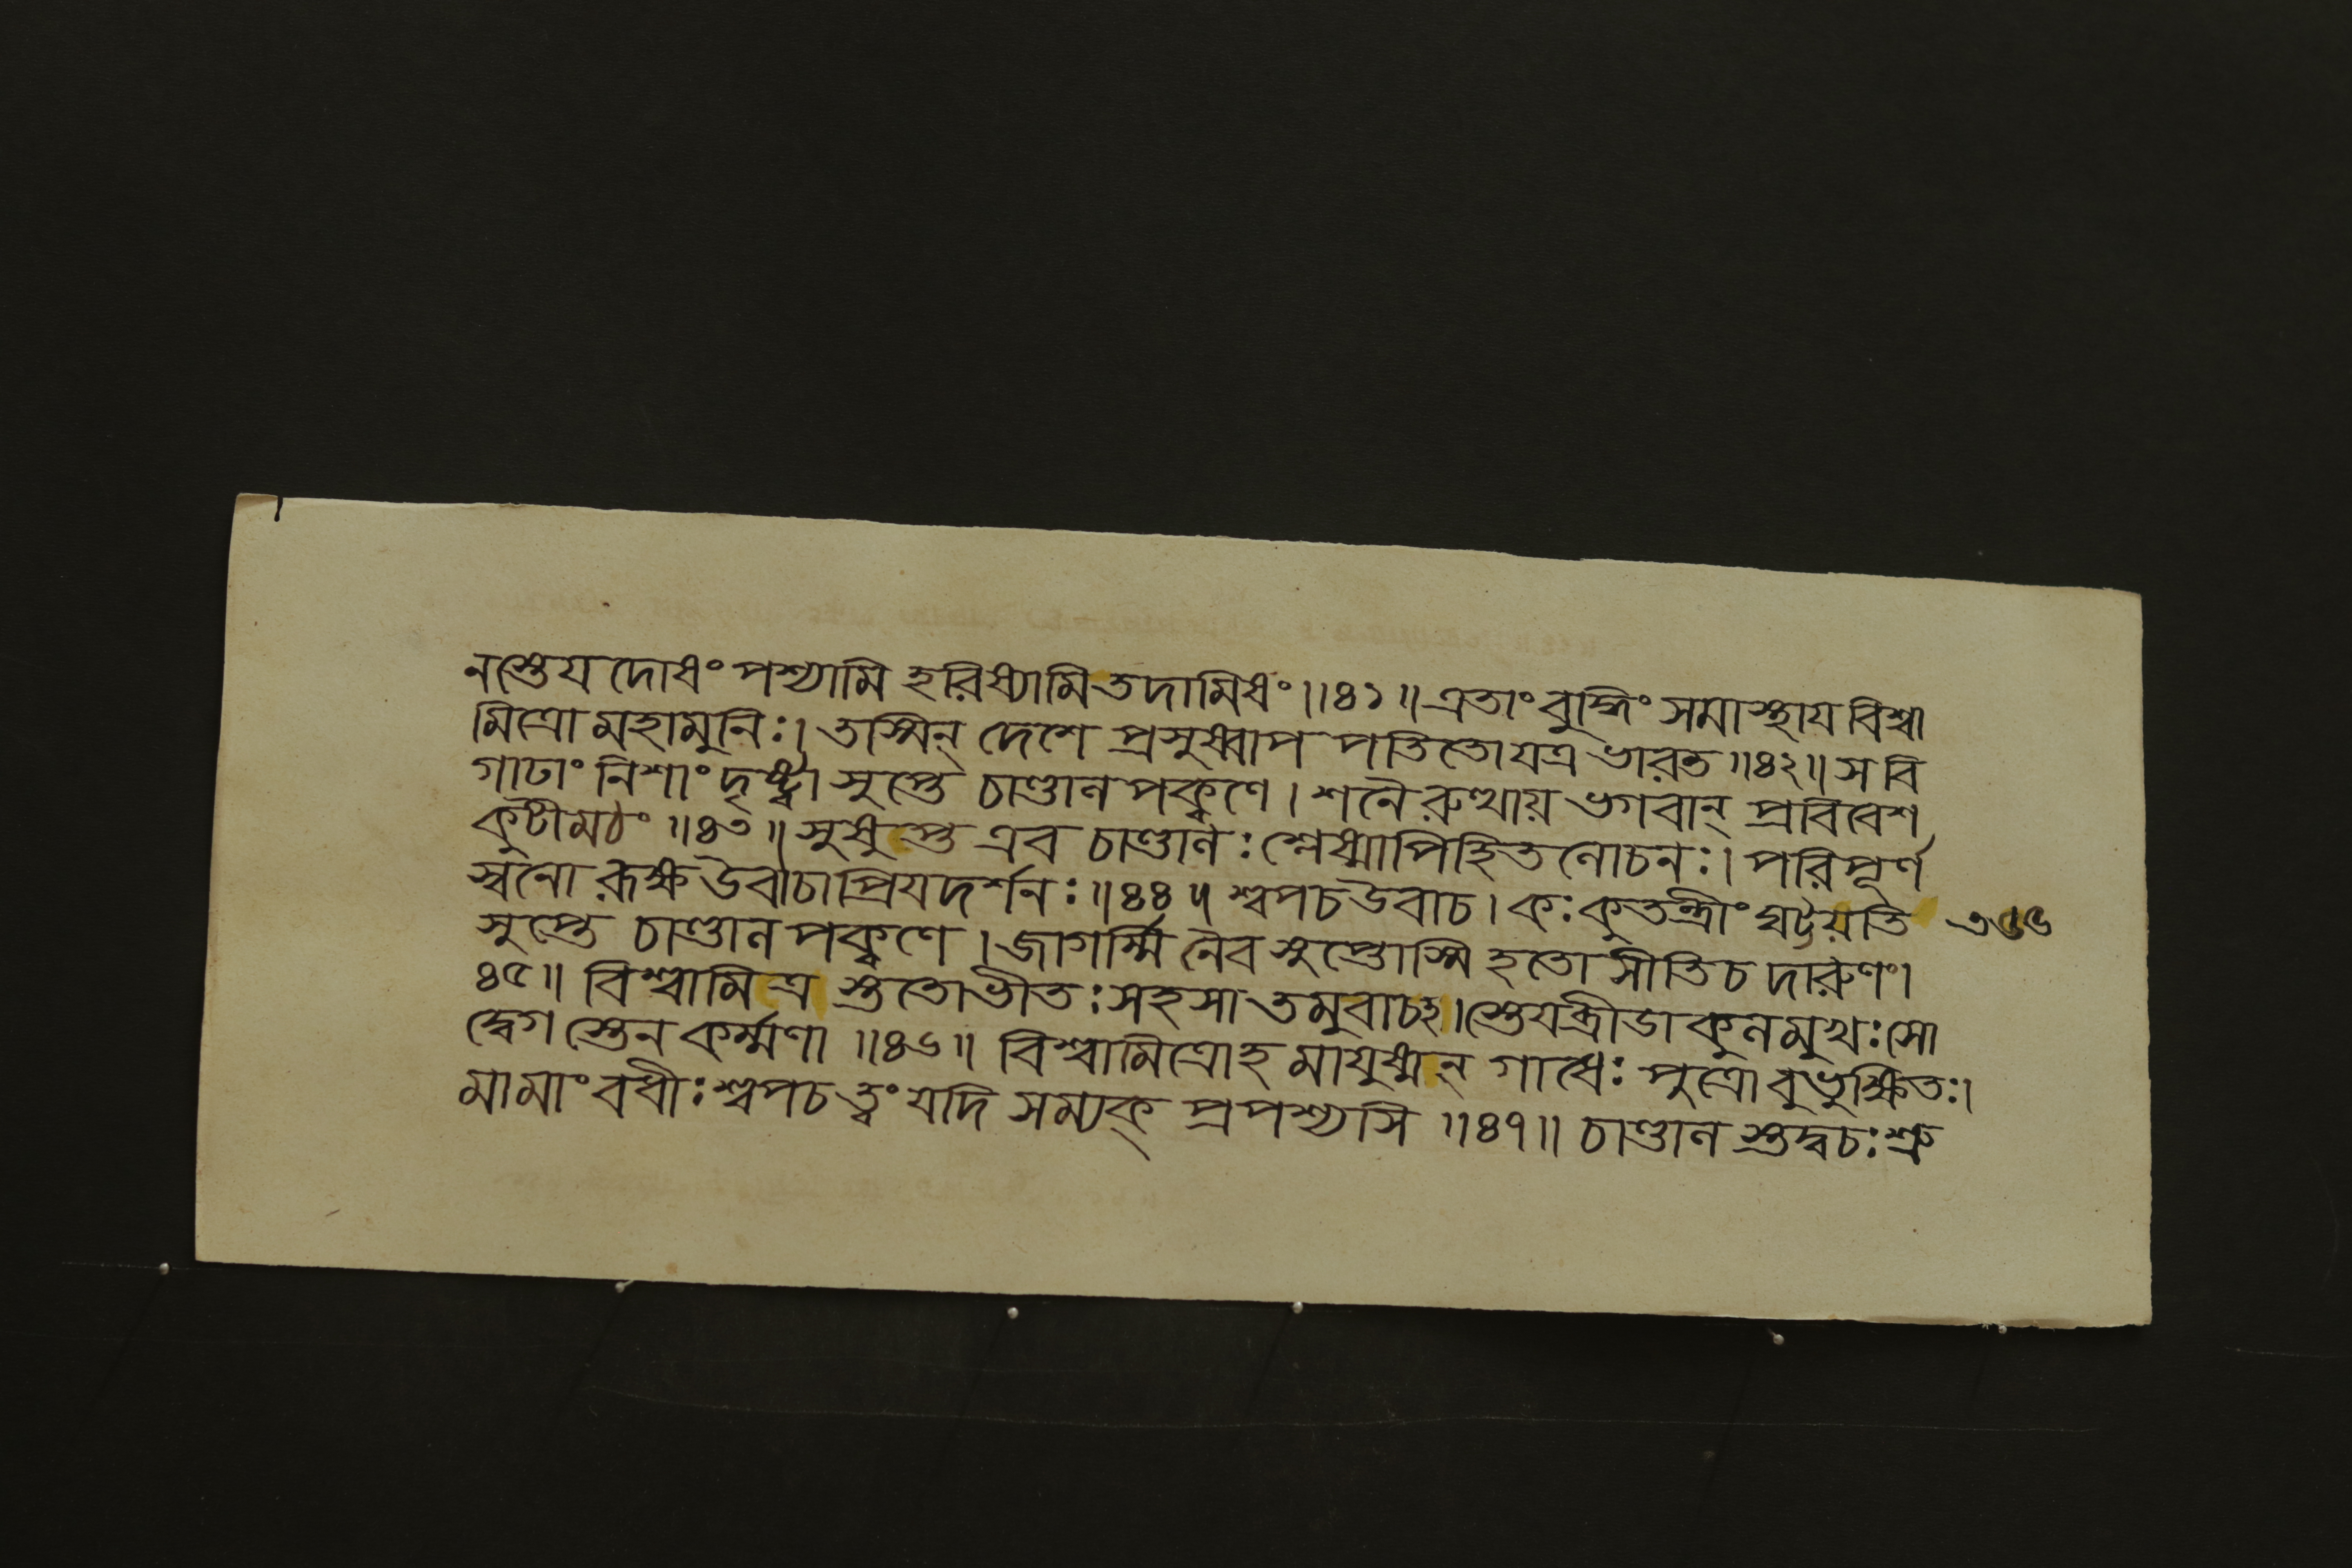 নস্তেয দোষং পশ্যামি হরিষ্যামি তদামিষং ॥৪১॥ এতাং বুদ্ধিং সমাস্থায বিশ্বা
মিত্রো মহামুনিঃ। তস্মিন্ দেশে প্রসুষ্বাপ পতিতো যত্র ভারত ॥৪২॥ স বি
গাঢাং নিশাং দৃষ্ট্বা সুপ্তে চাণ্ডাল পক্বণে। শনৈরুত্থায় ভগবান্ প্রবিবেশ
কুটীমঠং ॥৪৩॥ সুষুপ্ত এব চাণ্ডালঃ শ্লেষ্মাপিহিতলোচনঃ। পরিপূর্ণ
স্বনো রূক্ষ উবাচাপ্রিযদর্শনঃ ॥৪৪॥ শ্বপচ উবাচ। কঃ কুতন্ত্রীং ঘট্টয়তি
সুপ্তে চাণ্ডাল পক্বণে। জাগর্ম্মি নৈব সুপ্তোস্মি হতোসীতি চ দারুণং।
৪৫॥ বিশ্বামিত্র স্ততো ভীতঃ সহসা তমুবাচহ। স্তেযন্ত্রীডাকুলমুখঃ সো
দ্বেগ স্তেন কর্ম্মণা ॥৪৬॥ বিশ্বামিত্রোহ মাযুষ্মন্ গাধেঃ পুত্রো বুভুক্ষিতঃ।
মামাং বধীঃ শ্বপচ ত্বং যদি সম্যক্ প্রপশ্যসি ॥৪৭॥ চাণ্ডাল স্তদ্বচঃ শ্রু